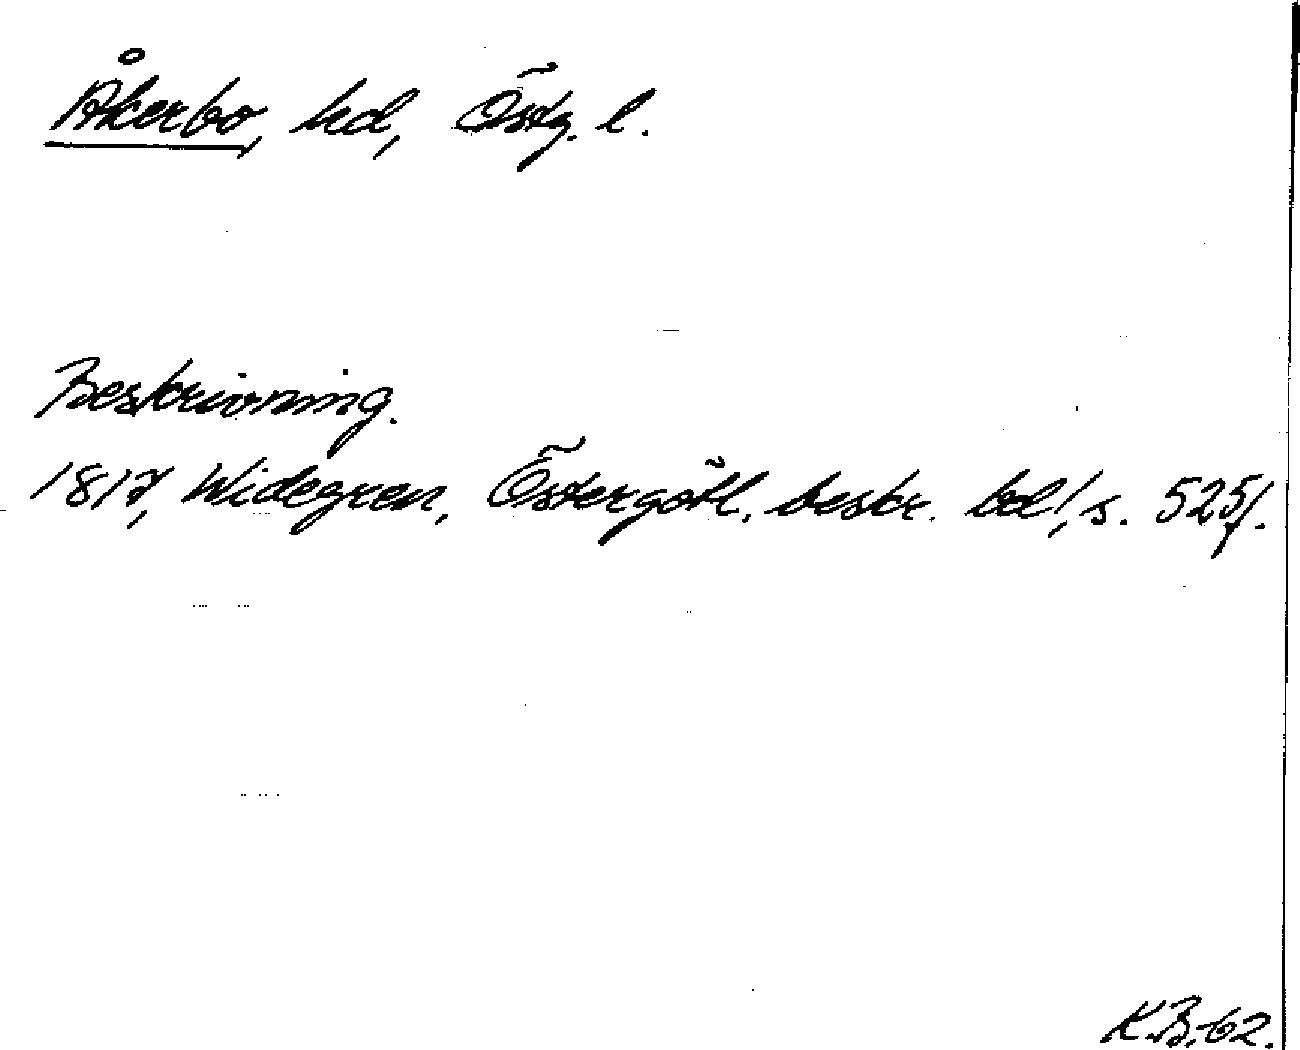 Åkerbo, hd, Östg. l.
Beskrivning.
1817, Widegren, Östergötl. beskr. bd 1, s. 525f.
K.B. 62.